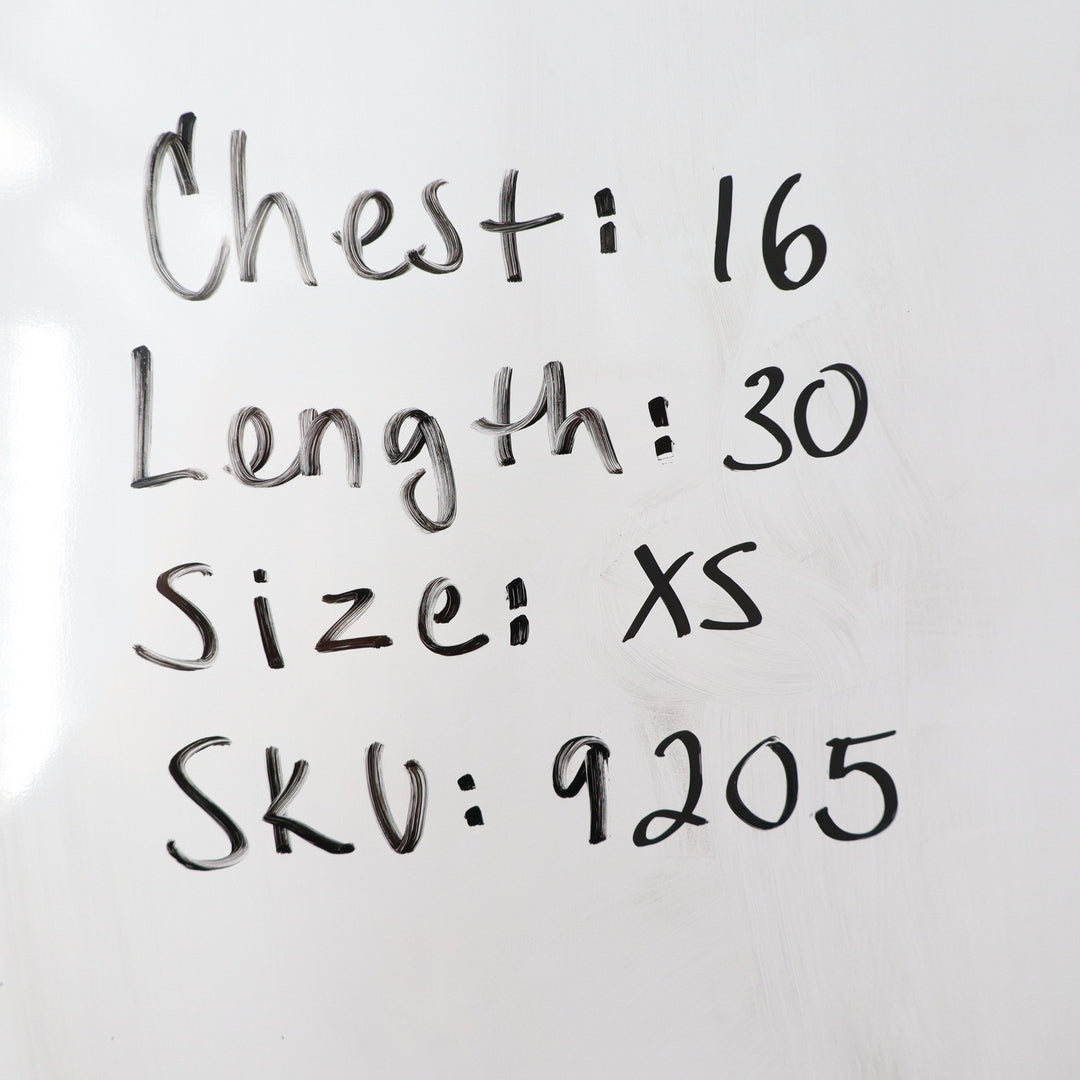 Chest: 16
Length: 30
Size: XS
SKU: 9205